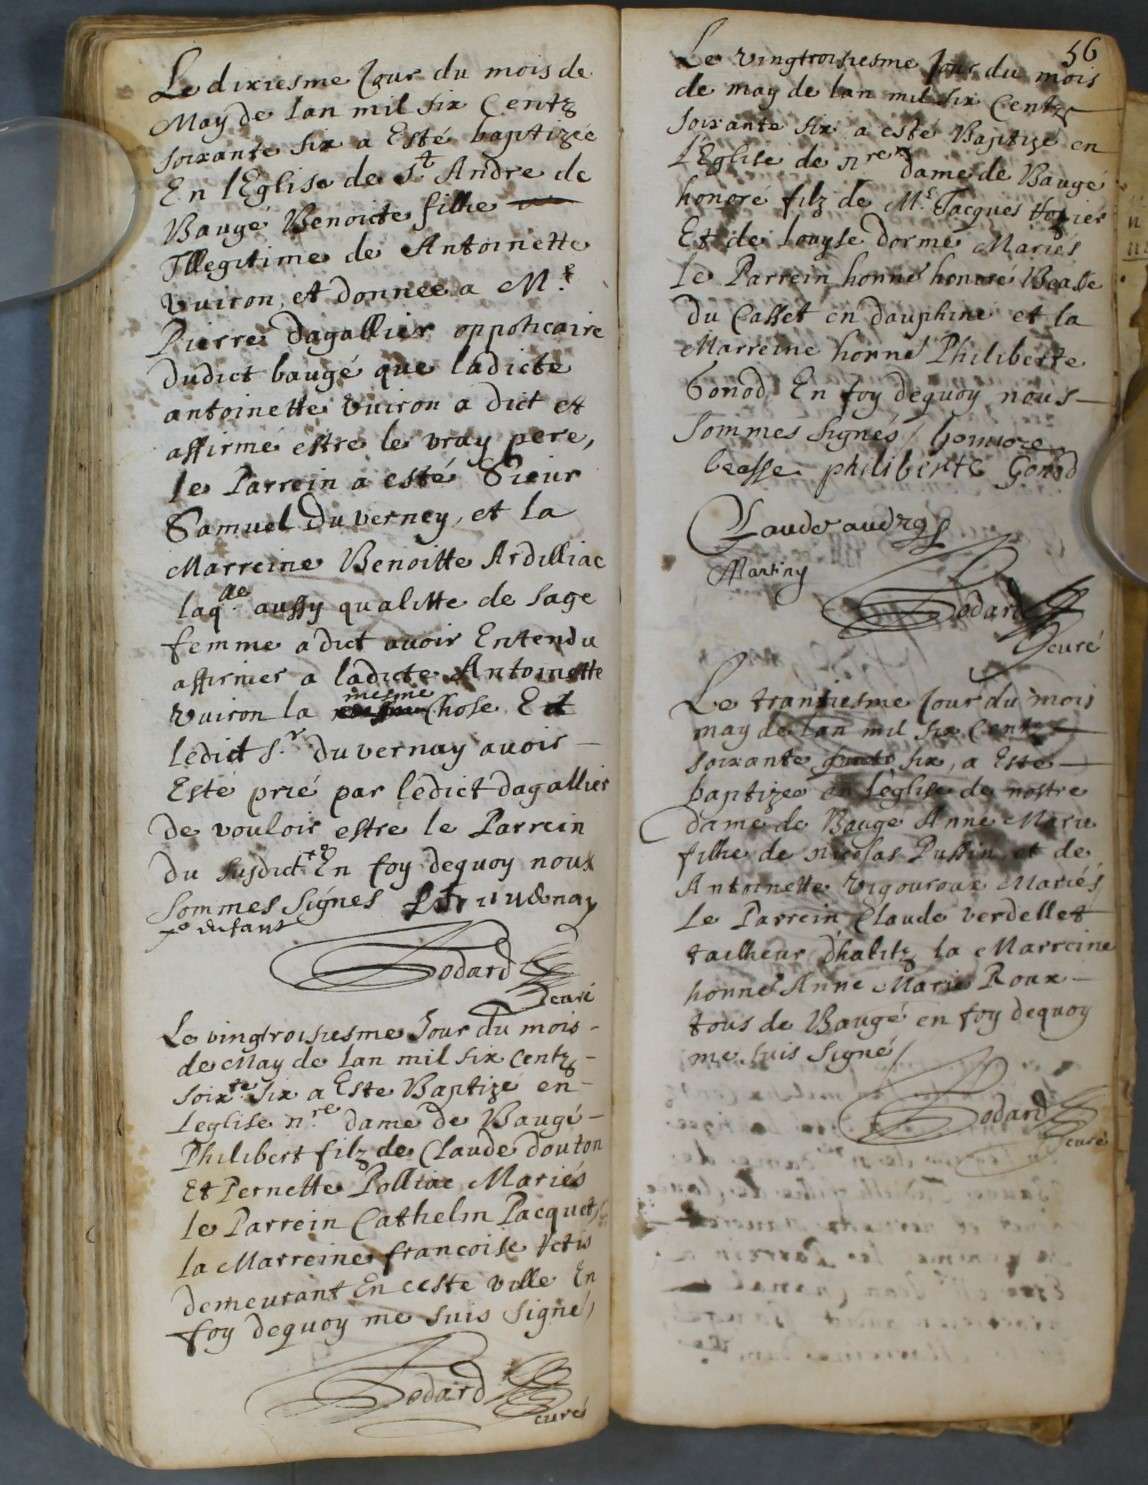 Le dixiesme Jour du mois de
May de lan mil six Centz
soixante six a Esté baptizée
En l'Eglise de st Andre de
Baugé Benoicte filhe
Illegitime de Antoinette
vuiron, et donnée a Mr
Pierre Dagallier oppoticaire
dudict baugé que ladicte
antoinette vuiron a dict et
affirmé estre le vray pere,
le Parrein a esté Sieur
Samuel Duverney, et la
Marreine Benoitte Ardilliac
laqlle aussy qualitte de sage
femme a dict avoir Entendu
affirmer a ladicte Antoinette
vuiron la mesme Chose Et
ledict Sr duvernay avoir
Esté prié par ledict dagallier
de vouloir estre le Parrein
du susdict + En foy dequoy nous
sommes signés
+ enfant
Bodard
curé
Le vingtroisiesme Jour du mois
de May de lan mil six centz
soixte six a Este Baptize en
Leglise nre dame de Baugé
Philibert filz de Claude douton
Et Pernette Polliac Mariés
le Parrein Cathelin Pacquet
la Marreine francoise
demeurant En ceste ville En
foy dequoy me suis signé
Bodard
curé
56
Le vingtroisiesme Jour du mois
de may de lan mil six Centz
soixante six a esté Baptizé en
L'Eglise de nre dame de Baugé
honoré filz de Mr Jacques
Et de Louyse dorme Mariés
le Parrein honne honoré Beasse
du Casset en dauphine et la
Marreine honne Philiberte
Gonod En foy dequoy nous
sommes signés honnore
beasse philiberte Gonod
Claude
Martiny
Bodard
curé
Le trantiesme Jour du mois
may de lan mil six Centz
soixante six, a Este
baptizee en l'eglise de nostre
dame de Baugé Anne Marie
filhe de nicolas Pussin et de
Antoinette vigouroux Mariés
Le Parrein Claude verdellet
tailheur d'habitz la Marreine
honne Anne Marie Roux
tous de Baugé en foy dequoy
me suis signé
Bodard
curé